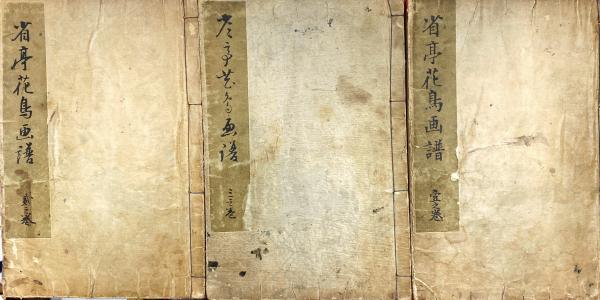 省亭花鳥画譜
壹之巻
省亭花鳥画譜
三之巻
省亭花鳥画譜
貳之巻